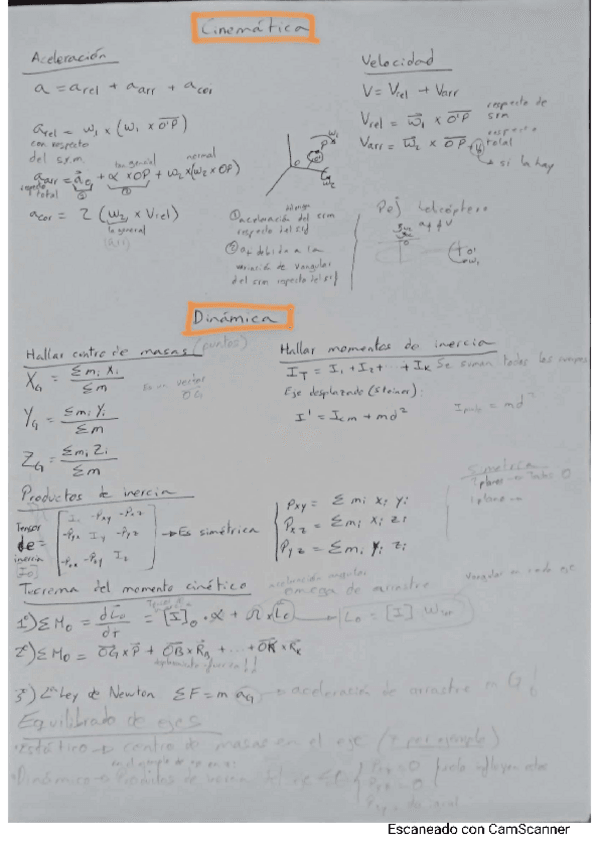 Cinemática
Aceleración
a = a_rel + a_arr + a_cor
a_rel = ω₁ × (ω₁ × O'P)
con respecto
del s.r.m
a_arr = a_G + α × OP + ω₂ × (ω₂ × OP)
normal
respecto
total
① ②
a_cor = 2 (ω₂ × V_rel)
la general
Velocidad
V = V_rel + V_arr
V_rel = ω₁ × O'P
respecto de
srm
V_arr = ω₂ × OP +
respecto
total
si la hay
P
ω₁
O'
ω₂
① aceleración del srm
respecto del srf
② a_t debido a la
variación de vangular
del srm respecto del srf
Pej helicóptero
O'
ω₁
Dinámica
Hallar centro de masas (puntos)
X_G = Σm_i x_i / Σm
Es un vector
OG
Y_G = Σm_i y_i / Σm
Z_G = Σm_i z_i / Σm
Hallar momentos de inercia
I_T = I₁ + I₂ + ... + I_K Se suman todos los cuerpos
Eje desplazado (Steiner)
I' = I_cm + md²
I = md²
Simetría
Productos de inercia
Tensor
de =
inercia
[I₀]
I_x -P_xy -P_xz
-P_yx I_y -P_yz
-P_zx -P_zy I_z
→ Es simétrica
P_xy = Σm_i x_i y_i
P_xz = Σm_i x_i z_i
P_yz = Σm_i y_i z_i
Teorema del momento cinético
aceleración angular
omega de arrastre
vangular en cada eje
1º) ΣM₀ = dL₀/dt = [I]₀ · α + Ω × L₀
L₀ = [I] ω
2º) ΣM₀ = OG × P + OB × R_B + ... + OK × R_K
3º) 2ª Ley de Newton ΣF = m a_G → aceleración de arrastre en G
Equilibrado de ejes
· Estático → centro de masas en el eje
· Dinámico → Productos de inercia